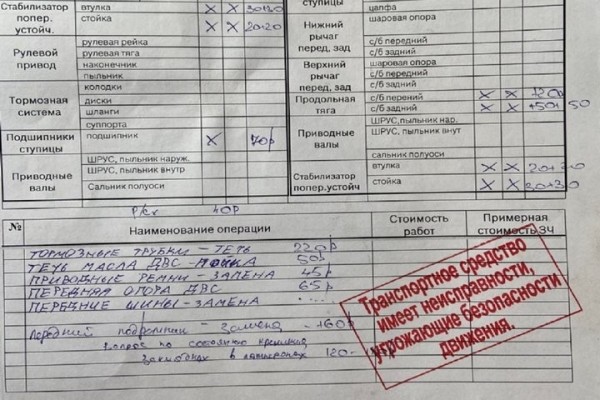 Стабилизатор попер. устойч.
втулка X X 30+30
стойка X X 20+20
Рулевой привод
рулевая рейка
рулевая тяга
наконечник
пыльник
Тормозная система
колодки
диски
шланги
суппорта
Подшипники ступицы
подшипник X 70р
Приводные валы
ШРУС, пыльник наруж.
ШРУС, пыльник внутр
Сальник полуоси
ступицы
цапфа
Нижний рычаг перед, зад
шаровая опора
с/б передний
с/б задний
Верхний рычаг перед, зад
шаровая опора
с/б передний
с/б задний
Продольная тяга
с/б перений X X
с/б задний X X 50
Приводные валы
ШРУС, пыльник нар.
ШРУС, пыльник внут
сальник полуоси
Стабилизатор попер.устойч
втулка X X
стойка X X
40р
№
Наименование операции
Стоимость работ
Примерная стоимость ЗЧ
ТОРМОЗНЫЕ ТРУБКИ - ТЕЧЬ 220р
ТЕЧЬ МАСЛА ДВС - 50р
ПРИВОДНЫЕ РЕМНИ - ЗАМЕНА 45р
ПЕРЕДНЯЯ ОПОРА ДВС 65р
ПЕРЕДНИЕ ШИНЫ - ЗАМЕНА
замена 160р
120
Транспортное средство
имеет неисправности,
угрожающие безопасности
движения.